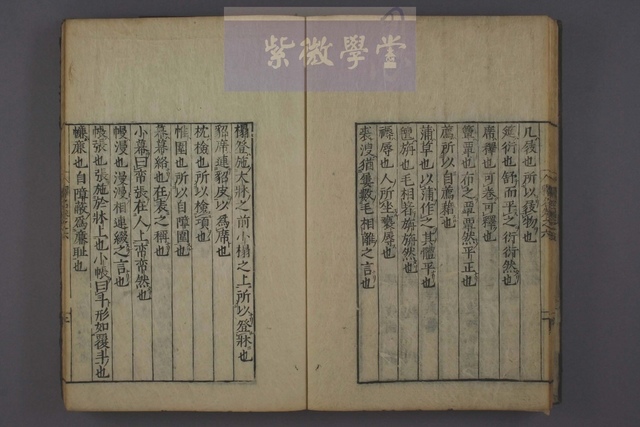 紫微學堂
几屐也所以屐物也
筵衍也舒而平之衍衍然也
席釋也可卷可釋也
簟覃也布之覃覃然平正也
薦所以自薦藉也
蒲草也以蒲作之其體平也
氊旃也毛相著旃旃然也
褥辱也人所坐褻辱也
裘溲猶屢數毛相離之言也
榻登施大牀之前小榻之上所以登牀也
貂席連貂皮以爲席也
枕檢也所以檢項也
帷圍也所以自障圍也
幕幕絡也在表之稱也
小幕曰帟張在人上帟帟然也
幔漫也漫漫相連綴之言也
帳張也張施於牀上也小帳曰斗形如覆斗也
㡘廉也自障蔽爲廉耻也